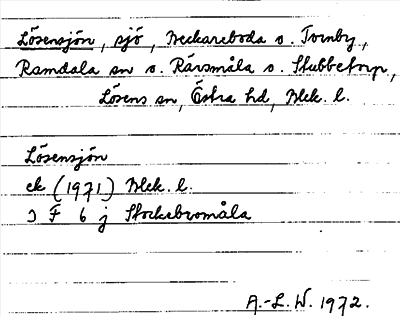 Lösensjön, sjö, Neckareboda o. Tornby,
Ramdala sn o. Rävsmåla o. Stubbetorp,
Lösens sn, Östra hd, Blek. l.
Lösensjön
ek (1971) Blek. l.
3 F 6 j Stocksbromåla
A.-L. W. 1972.